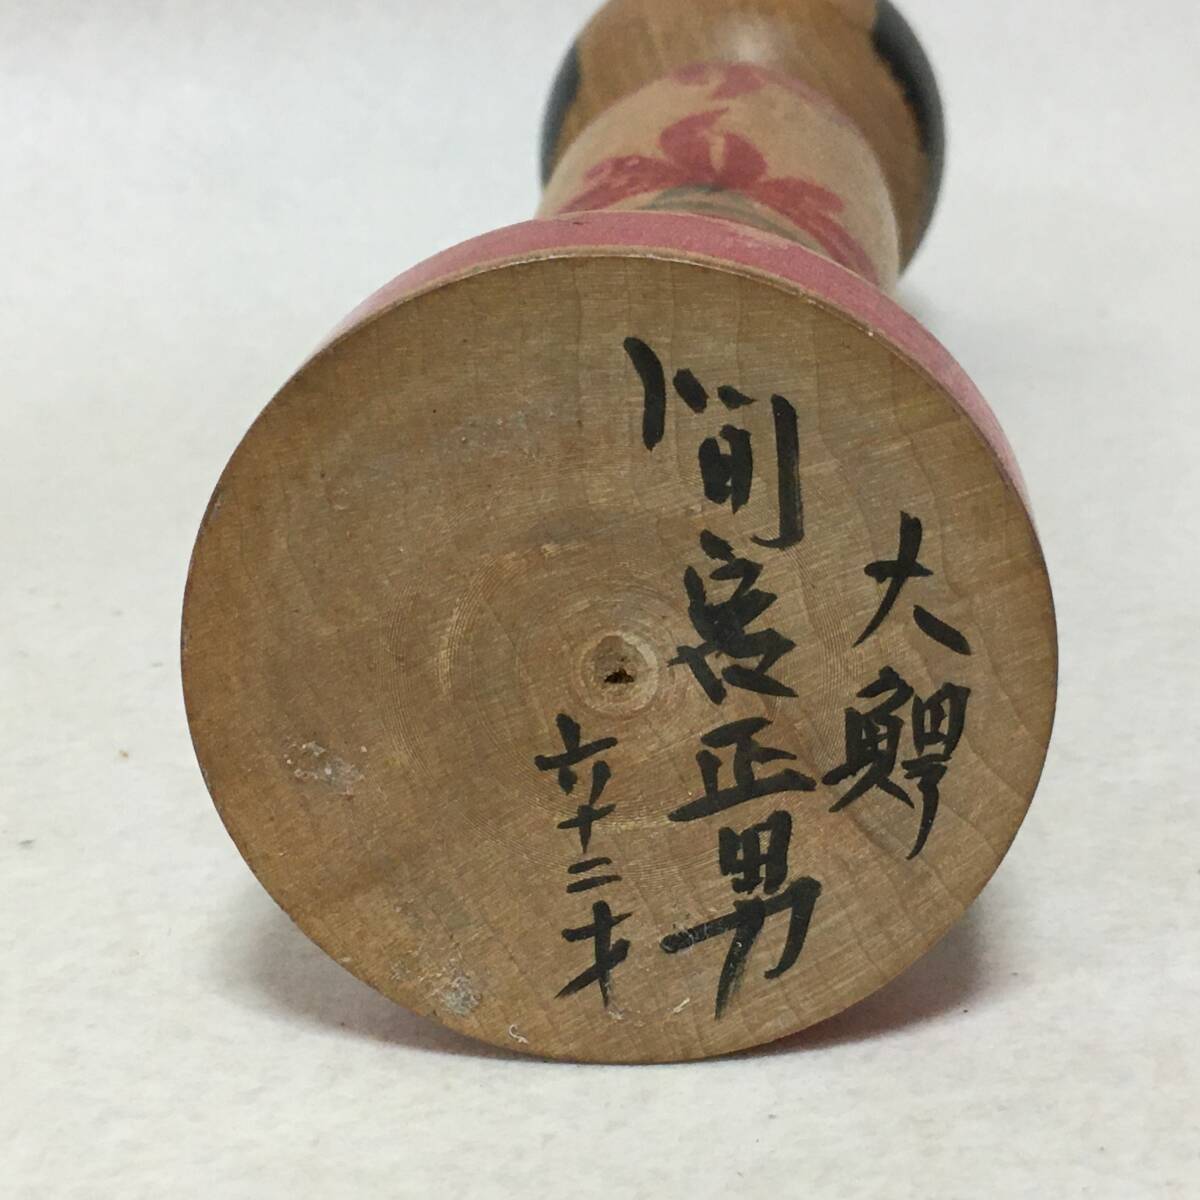 大鰐
間宮正男
六十二才